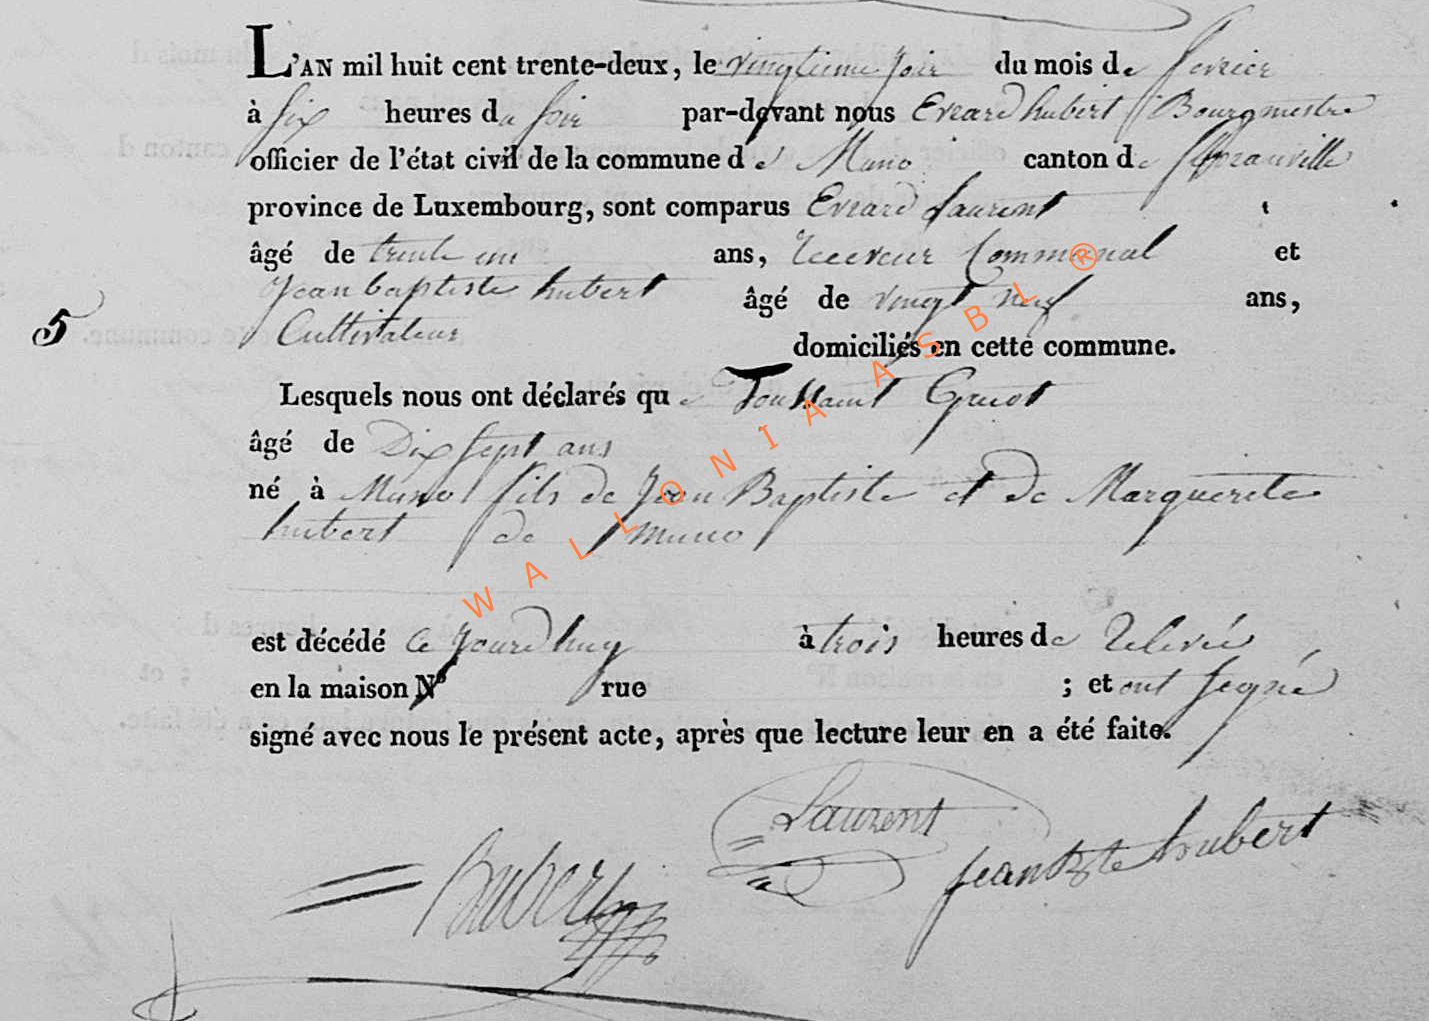 L'AN mil huit cent trente-deux, le vingtieme jour du mois de fevrier
à six heures du soir par-devant nous Evrard hubert Bourgmestre
officier de l'état civil de la commune de Muno canton de
province de Luxembourg, sont comparus Evrard Laurent
âgé de trente un ans, Receveur Communal et
Jean baptiste hubert âgé de vingt neuf ans,
5 Cultivateur domiciliés en cette commune.
Lesquels nous ont déclarés que Toussaint Guiot
âgé de Dix sept ans
né à Muno fils de Jean Baptiste et de Marguerite
hubert de Muno
est décédé ce jourd'huy à trois heures de relevée
en la maison N° rue ; et ont signé
signé avec nous le présent acte, après que lecture leur en a été faite.
Laurent
Hubert Jean Bte hubert
WALLONIA ASBL ®